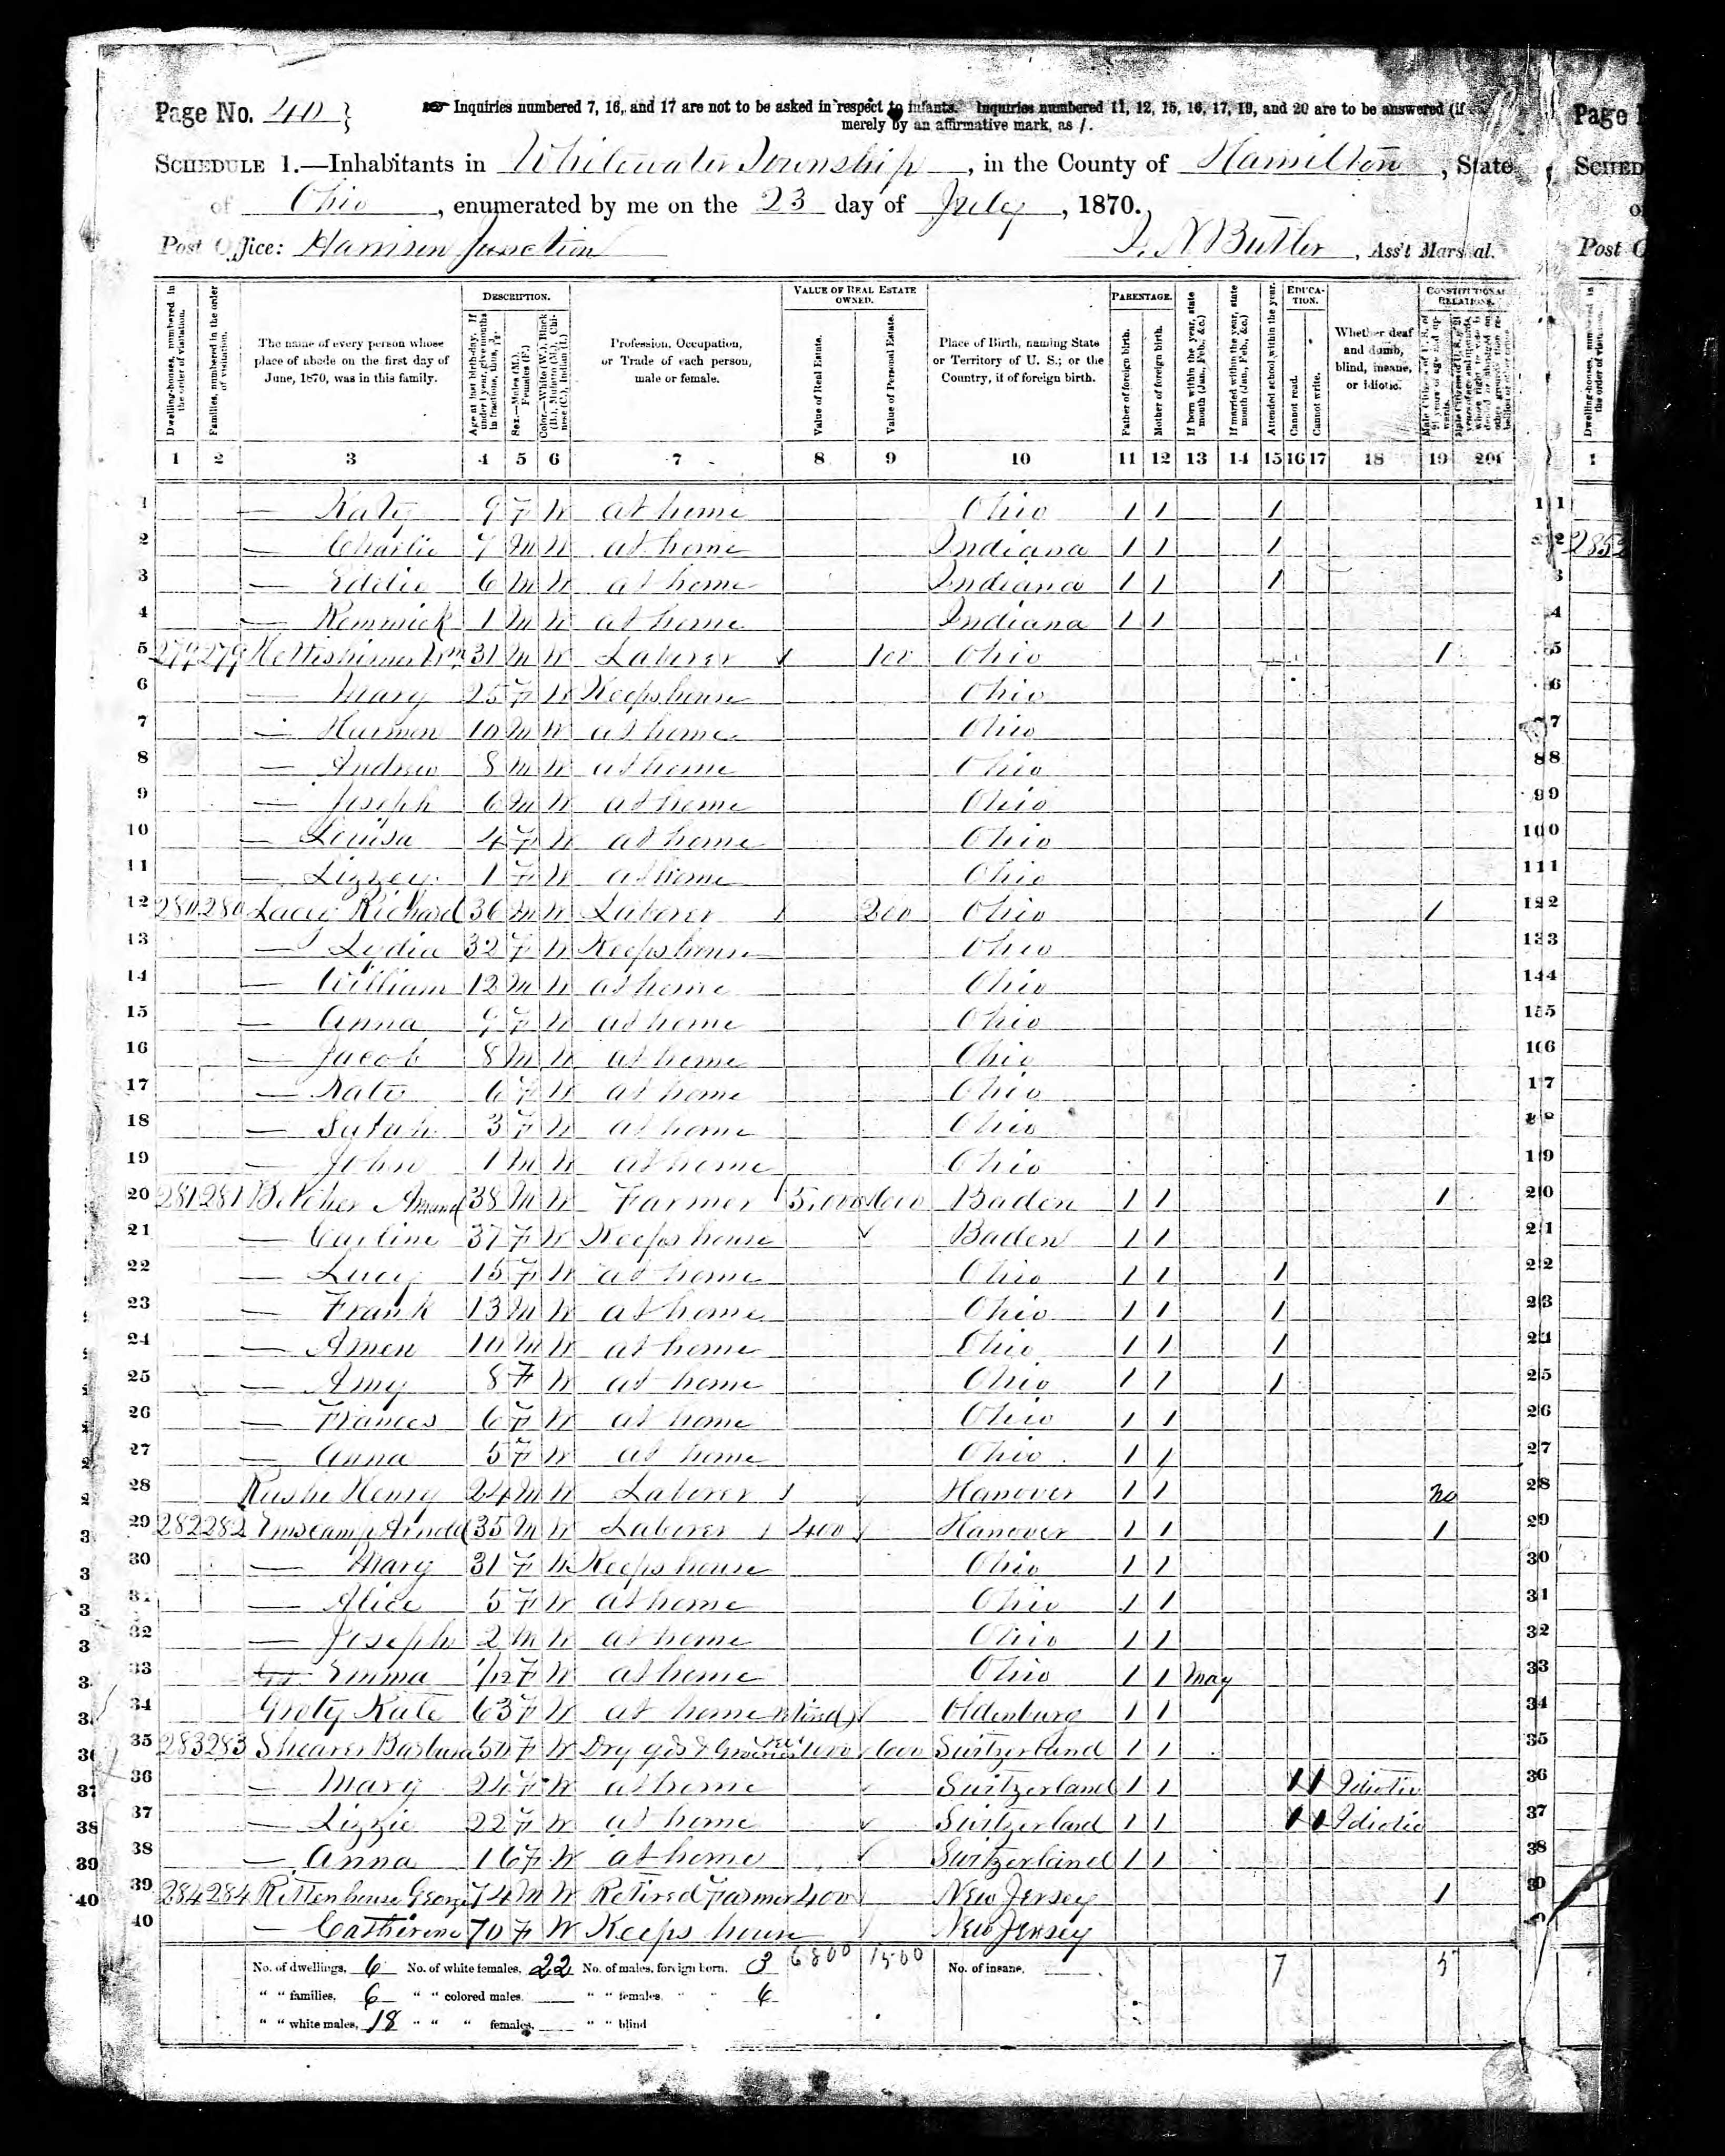 Page No. 40
Inquiries numbered 7, 16, and 17 are not to be asked in respect to infants. Inquiries numbered 11, 12, 15, 16, 17, 19, and 20 are to be answered (if
merely by an affirmative mark, as /.
SCHEDULE 1.—Inhabitants in Whitewater Township, in the County of Hamilton, State
of Ohio, enumerated by me on the 23 day of July, 1870.
Post Office: Harrison Junction
N Butler, Ass't Marshal.
Dwelling-houses, numbered in the order of visitation.
Families, numbered in the order of visitation.
The name of every person whose place of abode on the first day of June, 1870, was in this family.
DESCRIPTION.
Age at last birth-day. If under 1 year, give months in fractions, thus, 3/12.
Sex.—Males (M.), Females (F.)
Color.—White (W.), Black (B.), Mulatto (M.), Chinese (C.), Indian (I.)
Profession, Occupation, or Trade of each person, male or female.
VALUE OF REAL ESTATE OWNED.
Value of Real Estate.
Value of Personal Estate.
Place of Birth, naming State or Territory of U. S.; or the Country, if of foreign birth.
PARENTAGE.
Father of foreign birth.
Mother of foreign birth.
If born within the year, state month (Jan., Feb., &c.)
If married within the year, state month (Jan., Feb., &c.)
EDUCATION.
Attended school within the year.
Cannot read.
Cannot write.
Whether deaf and dumb, blind, insane, or idiotic.
CONSTITUTIONAL RELATIONS.
1 2 3 4 5 6 7 8 9 10 11 12 13 14 15 16 17 18 19 20
1 — Katy 9 F W at home Ohio / / / 1
2 — Charlie 7 M W at home Indiana / / / 2
3 — Eddie 6 M W at home Indiana / / / 3
4 — Remmick 1 M W at home Indiana / / 4
5 279 279 Wm 31 M W Laborer 100 Ohio / 5
6 — Mary 25 F W Keeps house Ohio 6
7 — Harmon 10 M W at home Ohio 7
8 — Andrew 8 M W at home Ohio 8
9 — Joseph 6 M W at home Ohio 9
10 — Louisa 4 F W at home Ohio 10
11 — Lizzey 1 F W at home Ohio 11
12 280 280 Lacy Richard 36 M W Laborer 200 Ohio / 12
13 — Lydia 32 F W Keeps house Ohio 13
14 — William 12 M W at home Ohio 14
15 — Anna 9 F W at home Ohio 15
16 — Jacob 8 M W at home Ohio 16
17 — Kate 6 F W at home Ohio 17
18 — Sarah 3 F W at home Ohio 18
19 — John 1 M W at home Ohio 19
20 281 281 38 M W Farmer 5,000 Baden / / / 20
21 — Carline 37 F W Keeps house Baden / / 21
22 — Lucy 15 F W at home Ohio / / / 22
23 — Frank 13 M W at home Ohio / / / 23
24 — Amen 10 M W at home Ohio / / / 24
25 — Amy 8 F W at home Ohio / / / 25
26 — Frances 6 F W at home Ohio / / 26
27 — Anna 5 F W at home Ohio / / 27
28 Rushe Henry 24 M W Laborer Hanover / / no 28
29 282 282 Arnold 35 M W Laborer 400 Hanover / / / 29
30 — Mary 31 F W Keeps house Ohio / / 30
31 — Alice 5 F W at home Ohio / / 31
32 — Joseph 2 M W at home Ohio / / 32
33 — Emma 1/12 F W at home Ohio / / May 33
34 Groty Kate 63 F W at home Oldenburg / / 34
35 283 283 Shearer Barbara 50 F W Dry gds & Groceries 1000 Switzerland / / 35
36 — Mary 24 F W at home Switzerland / / / / Idiotic 36
37 — Lizzie 22 F W at home Switzerland / / / / Idiotic 37
38 — Anna 16 F W at home Switzerland / / 38
39 284 284 Rittenhouse George 74 M W Retired Farmer 400 New Jersey / 39
40 — Catherine 70 F W Keeps house New Jersey 40
No. of dwellings, 6 No. of white females, 22 No. of males, foreign born, 3 6800 1500 No. of insane, 7 5
" " families, 6 " " colored males, " " females, " " 6
" " white males, 18 " " " females, " " blind
Page
SCHED
Post O
285